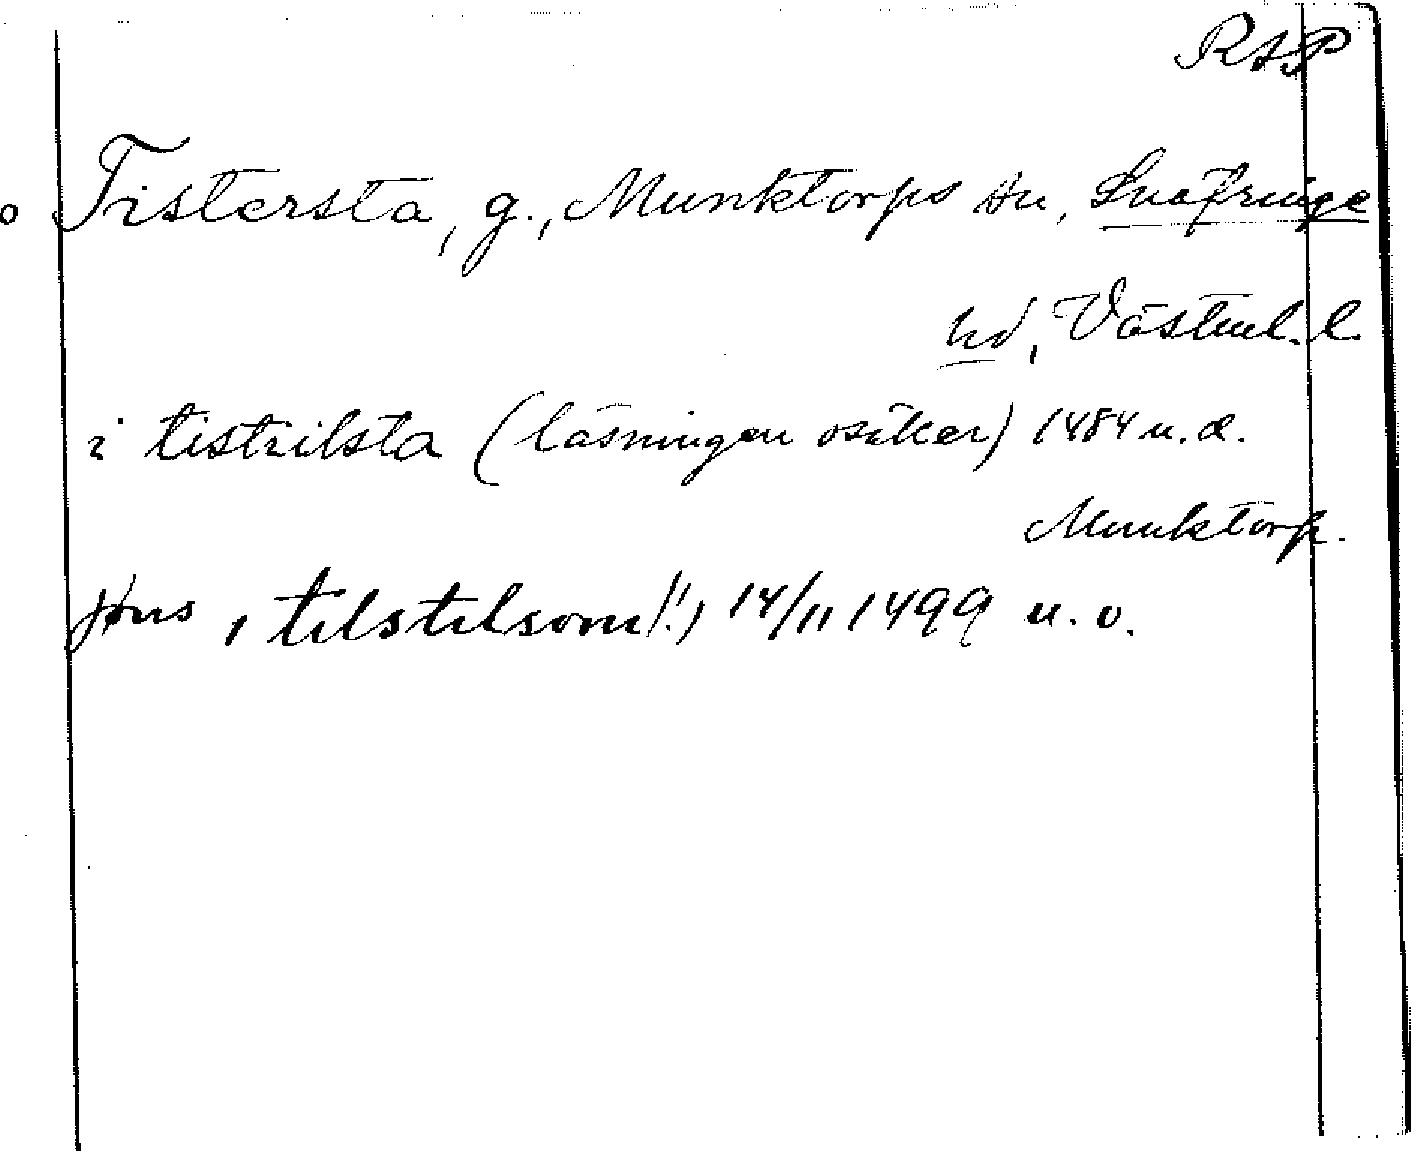 RAP
Tistersta, g., Munktorps sn, Snäfringe
hd, Västml. l.
i tistilsta (läsningen osäker) 1484 u. d.
Munktorp.
jöns i tilstilsom (!) 14/11 1499 u. o.